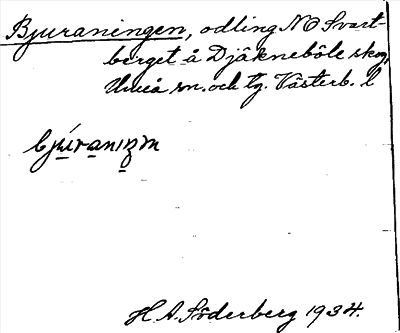 Bjuraningen, odling NO Svart-
berget å Djäkneböle skog,
Umeå sn. och tg. Västerb. l
H. A. Söderberg 1934.